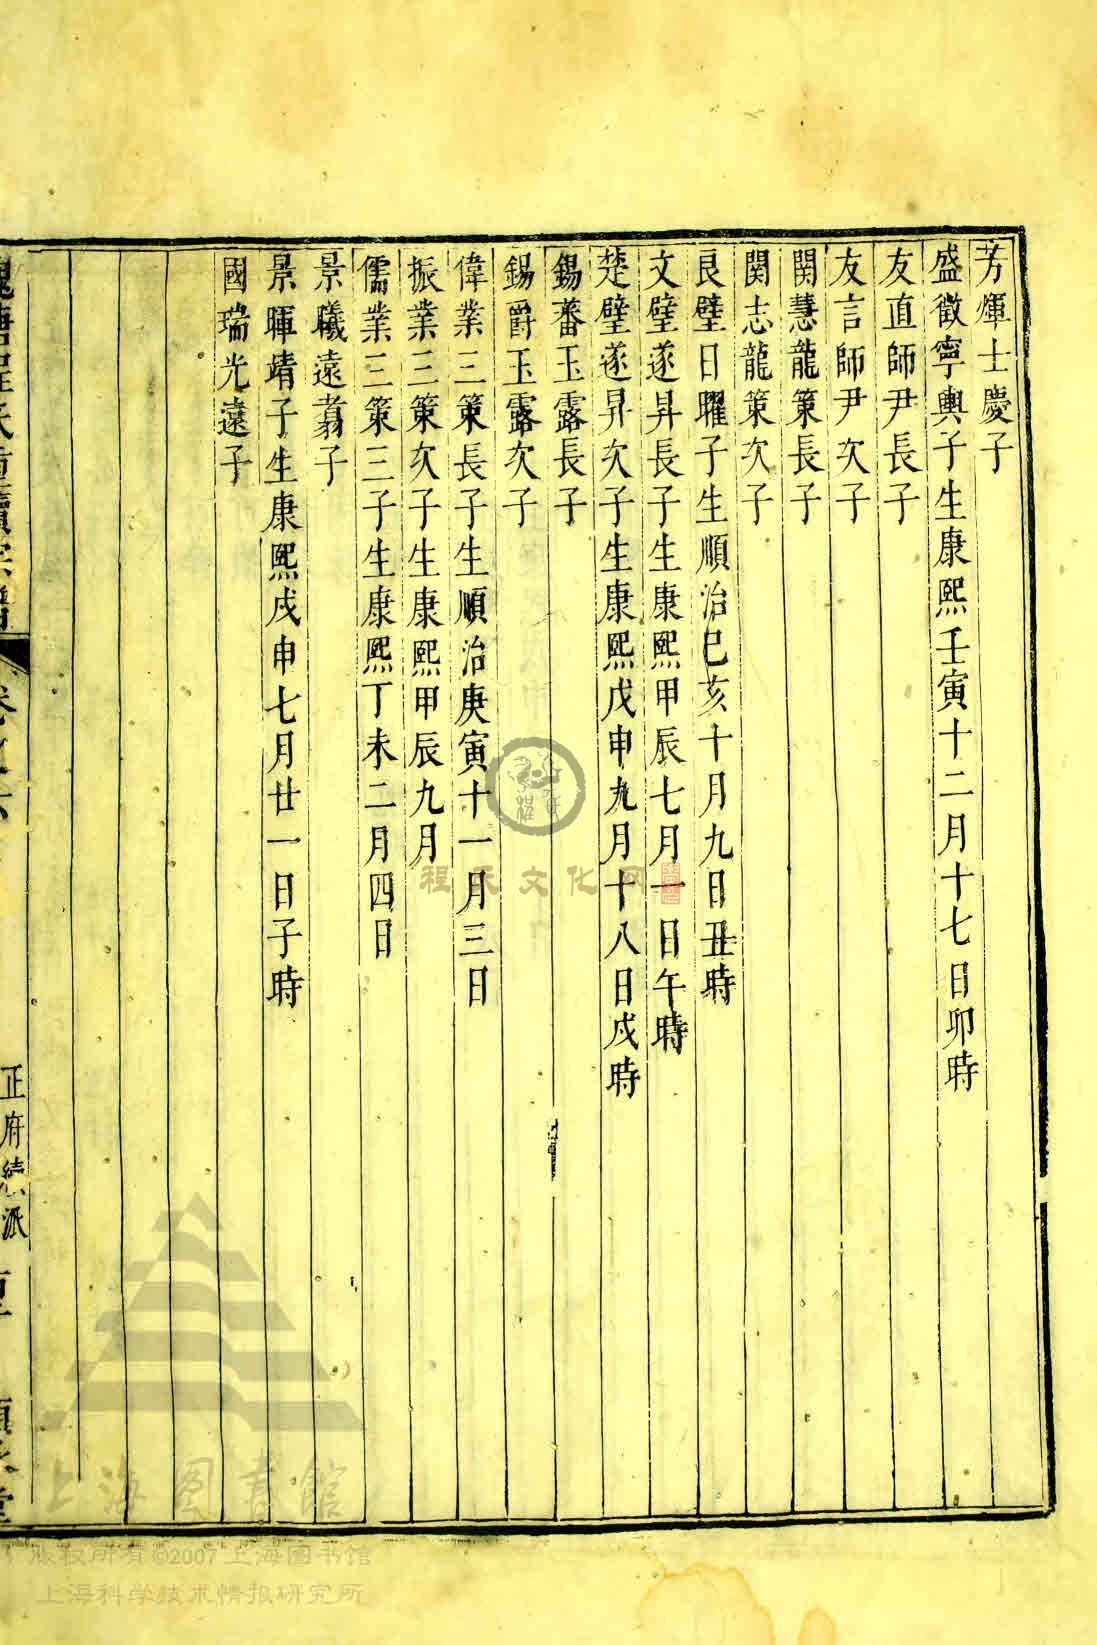 芳煇士慶子
盛徵寧輿子生康熙壬寅十二月十七日卯時
友直師尹長子
友言師尹次子
関慧龍策長子
関志龍策次子
良璧日曜子生順治己亥十月九日丑時
文璧遂昇長子生康熙甲辰七月一日午時
楚璧遂昇次子生康熙戊申九月十八日戌時
錫蕃玉露長子
錫爵玉露次子
偉業三策長子生順治庚寅十一月三日
振業三策次子生康熙甲辰九月
儒業三策三子生康熙丁未二月四日
景曦遠翥子
景暉靖子生康熙戊申七月廿一日子時
國瑞光遠子
卷之六
正府續派
程天文化网
上海图書館
版权所有©2007上海图书馆
上海科学技术情报研究所